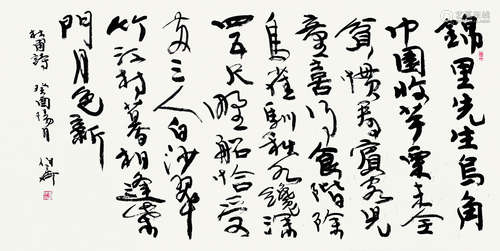 錦里先生烏角
巾園收芋栗未全
貧慣看賓客兒
童喜得食階除
鳥雀馴秋水纔深
四五尺野船恰受
兩三人白沙翠
竹江村暮相逢柴
門月色新
杜甫詩 癸酉陽月